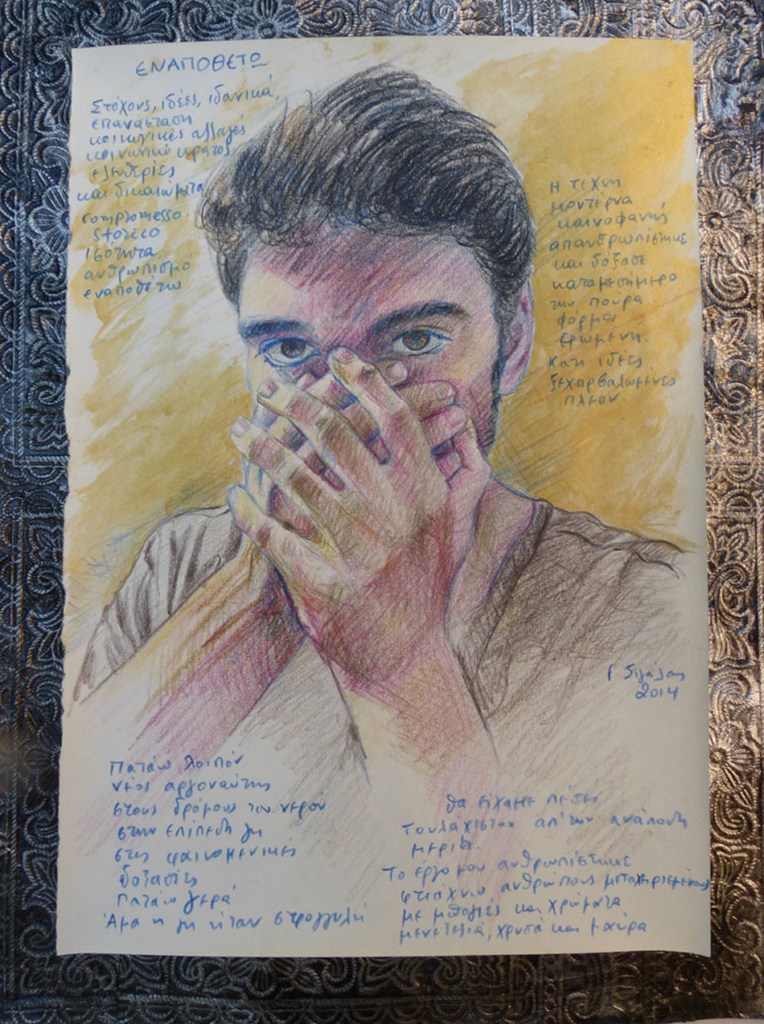 ΕΝΑΠΟΘΕΤΩ
Στόχους, ιδέες, ιδανικά,
επανάσταση
κοινωνικές αλλαγές
κοινωνικό κράτος
ελευθερίες
και δικαιώματα
compromesso
storico
ισότητα
ανθρωπισμό
εναποθέτω
Η τέχνη
μοντέρνα
καινοφανής
απανθρωπίστηκε
και δόξασε
καταμεσήμερο
την πούρα
φόρμα
ερωμένη.
Κάτι ιδέες
ξεχαρβαλωμένες
πλέον.
2014
Πατάω λοιπόν
νέος αργοναύτης
στους δρόμους του νερού
στην επίπεδη γη
στις φαινομενικές
δοξασίες
Πατάω γερά
Άμα η γη ήταν στρογγυλή
θα είχαμε πέσει
τουλάχιστον απ' την ανάποδη
μεριά.
Το έργο μου ανθρωπίστηκε
φτιάχνω ανθρώπους μεταχειρισμένους
με μπογιές και χρώματα
μενεξελιά, χρυσά και μαύρα